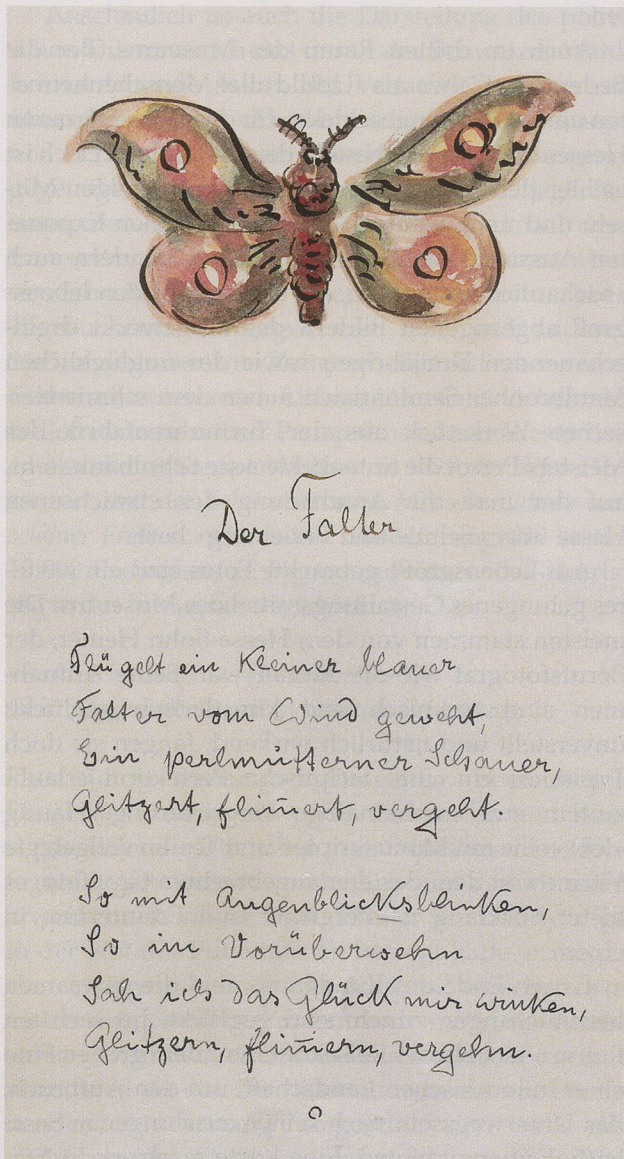 Der Falter
Flügelt ein kleiner blauer
Falter vom Wind geweht,
Ein perlmutterner Schauer,
Glitzert, flim̄ert, vergeht.
So mit Augenblicksblinken,
So im Vorüberwehn
Sah ich das Glück mir winken,
Glitzern, flim̄ern, vergehn.